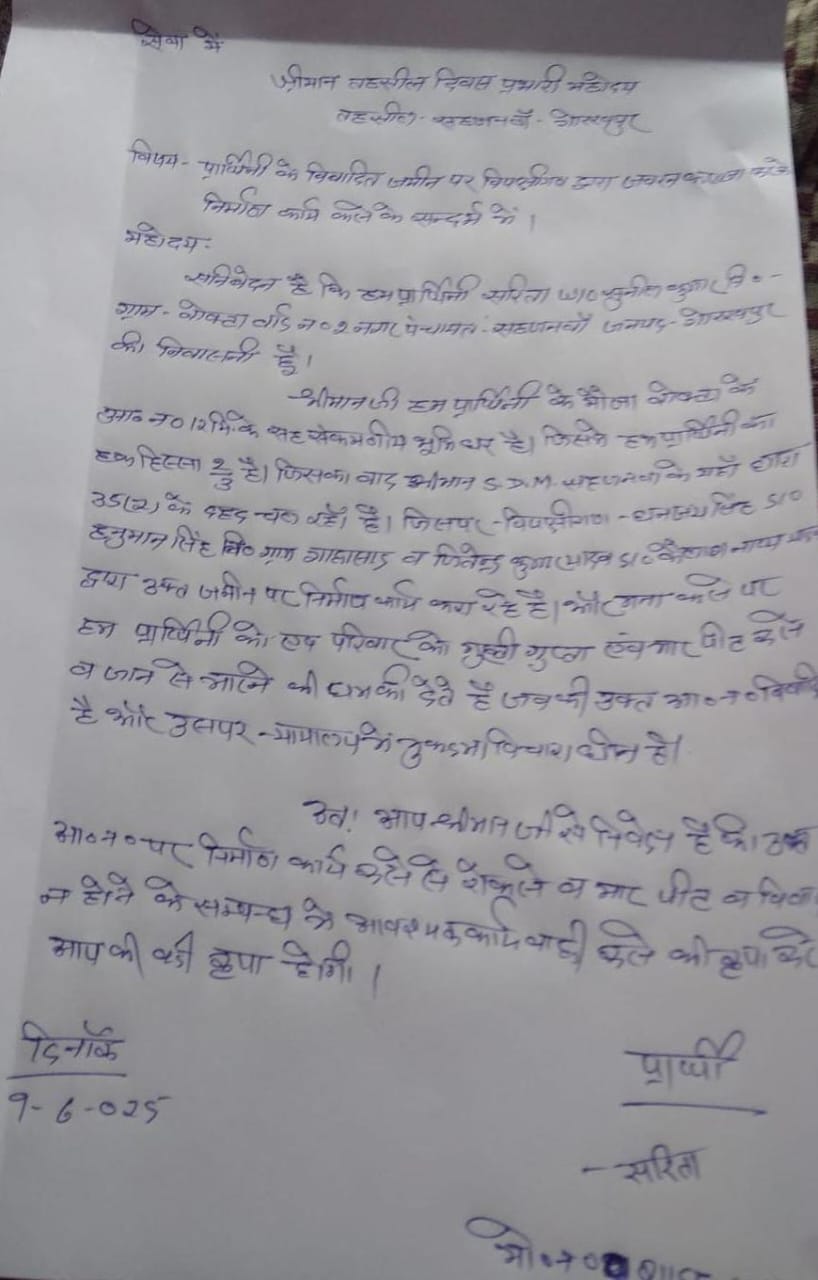 सेवा में
श्रीमान तहसील दिवस प्रभारी महोदय
तहसील- सहजनवाँ - गोरखपुर
विषय- प्रार्थिनी के विवादित जमीन पर विपक्षीगण द्वारा जबरन कब्जा करके
निर्माण कार्य करने के सन्दर्भ में।
महोदय:
सनिवेदन है कि हम प्रार्थिनी सरिता W/o सुनील कुमार नि०-
ग्राम- वार्ड न० 2 नगर पंचायत- सहजनवाँ जनपद- गोरखपुर
की निवासनी हूँ।
श्रीमान जी हम प्रार्थिनी के मौजा के
आ० न० 12 मि० के सह भूमिधर है। जिसमें हम प्रार्थिनी का
हक हिस्सा 2/3 है। जिसका वाद श्रीमान S.D.M. सहजनवा के यहाँ धारा
35(2) के तहद चल रहा है। जिसपर- विपक्षीगण - धनन्जय सिंह S/O
हनुमान सिंह नि० ग्राम व जितेन्द्र कुमार यादव S/o कैलाश नाथ
द्वारा उक्त जमीन पर निर्माण कार्य करा रहे है। और मना करने पर
हम प्रार्थिनी को एवं परिवार को गुप्ता एवं मार पीट करने
व जान से मारने की धमकी देते है जबकी उक्त आ० न०
है और उसपर - न्यायालय में मुकदमा विचाराधीन है।
अत: आप श्रीमान जी से निवेदन है कि उक्त
आ० न० पर निर्माण कार्य करने से रोकने व मार पीट व
न होने के सम्बन्ध में आवश्यक कार्यवाही करने की कृपा करें
आप की बडी कृपा होगी।
दिनाँक
9-6-025
प्रार्थी
- सरिता
मो० न०